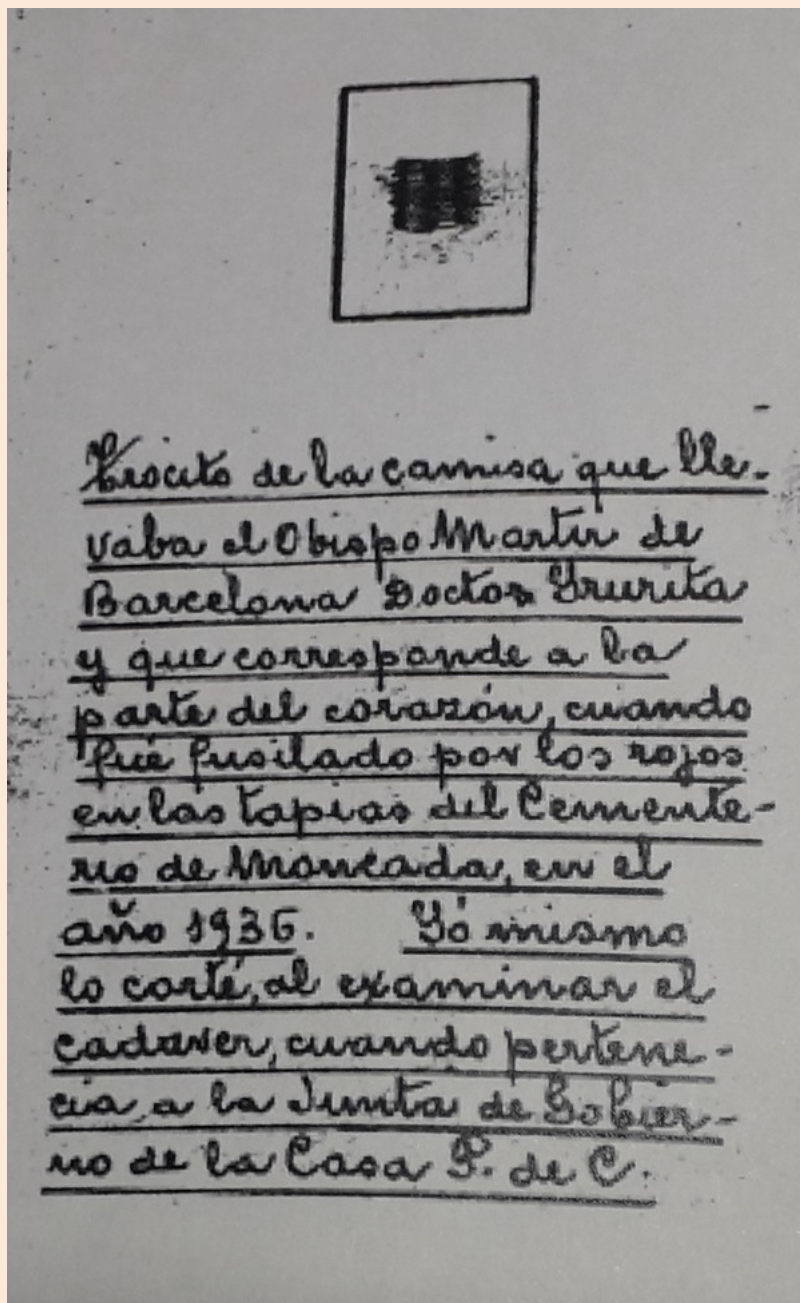 Trocito de la camisa que lle-
vaba el Obispo Martir de
Barcelona Doctor Irurita
y que corresponde a la
parte del corazón, cuando
fué fusilado por los rojos
en las tapias del Cemente-
rio de Moncada, en el
año 1936. Yó mismo
lo corté, al examinar el
cadaver, cuando pertene-
cia a la Junta de Gobier-
no de la Casa P. de C.